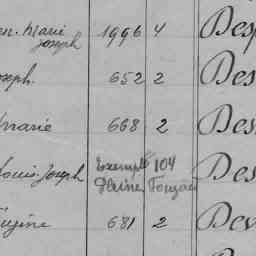 en. Marie Joseph 1996 4 Des
oseph. 652 2 Des
marie 668 2 Des
ouis Joseph Exempté 104 Des
ugène 681 2 Dev